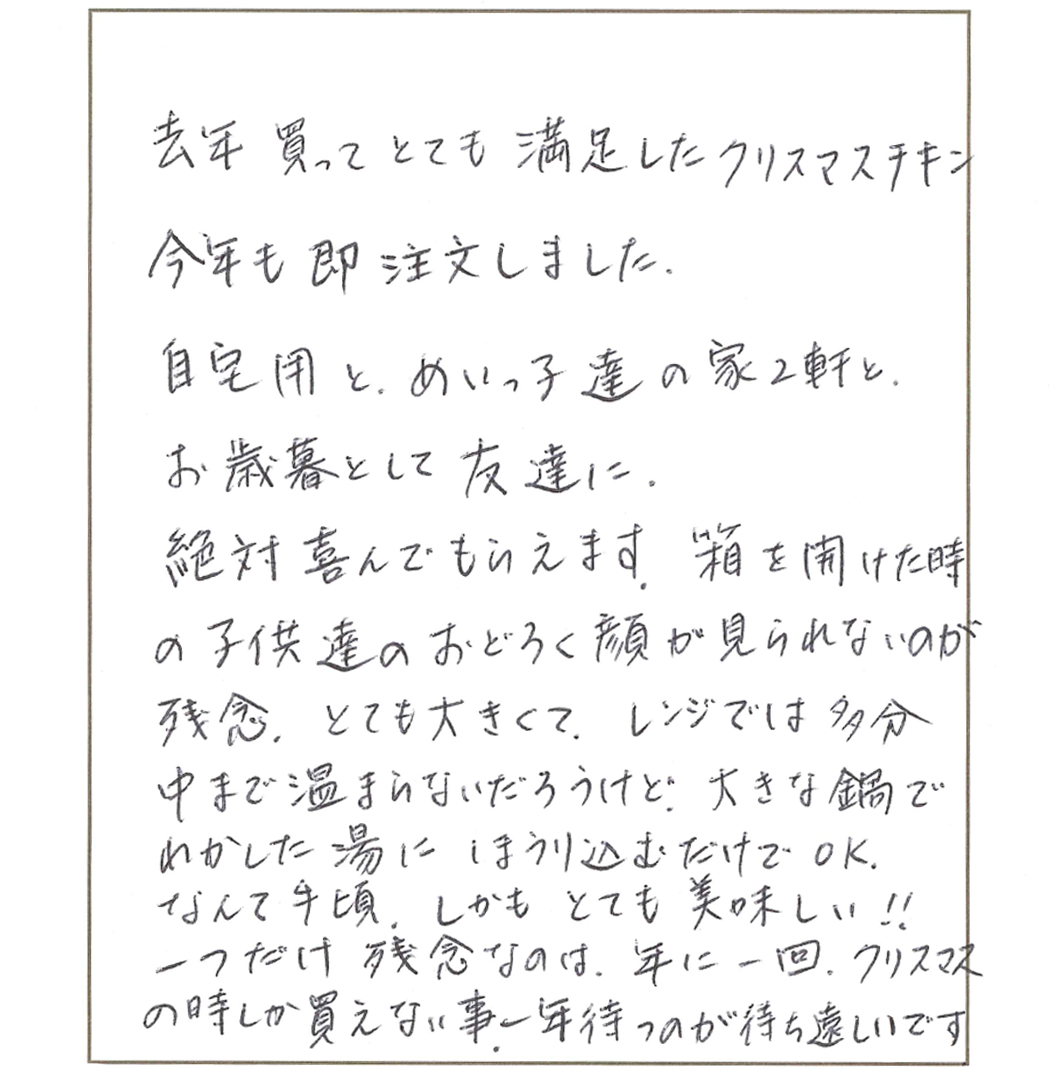 去年買ってとても満足したクリスマスチキン
今年も即注文しました.
自宅用と.めいっ子達の家2軒と.
お歳暮として友達に.
絶対喜んでもらえます.箱を開けた時
の子供達のおどろく顔が見られないのが
残念.とても大きくて.レンジでは多分
中まで温まらないだろうけど.大きな鍋で
わかした湯にほうり込むだけでOK.
なんて手頃.しかもとても美味しい!!
一つだけ残念なのは.年に一回.クリスマス
の時しか買えない事.一年待つのが待ち遠しいです